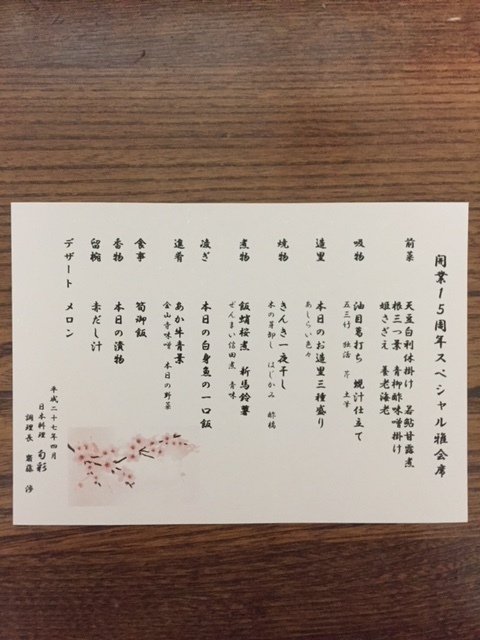 開業15周年スペシャル雅会席
前菜 天豆白利休掛け 若鮎甘露煮
根三つ葉 青柳酢味噌掛け
姫さざえ 養老海老
吸物 油目葛打ち 蜆汁仕立て
五三竹 独活 芹 土筆
造里 本日のお造里三種盛り
あしらい色々
焼物 きんき一夜干し
木の芽卸し はじかみ 酢橘
煮物 飯蛸桜煮 新馬鈴薯
ぜんまい信田煮 青味
凌ぎ 本日の白身魚の一口飯
進肴 あか牛青葉
金山寺味噌 本日の野菜
食事 筍御飯
香物 本日の漬物
留椀 赤だし汁
デザート メロン
平成二十七年四月
日本料理 旬彩
調理長 齋藤 渉